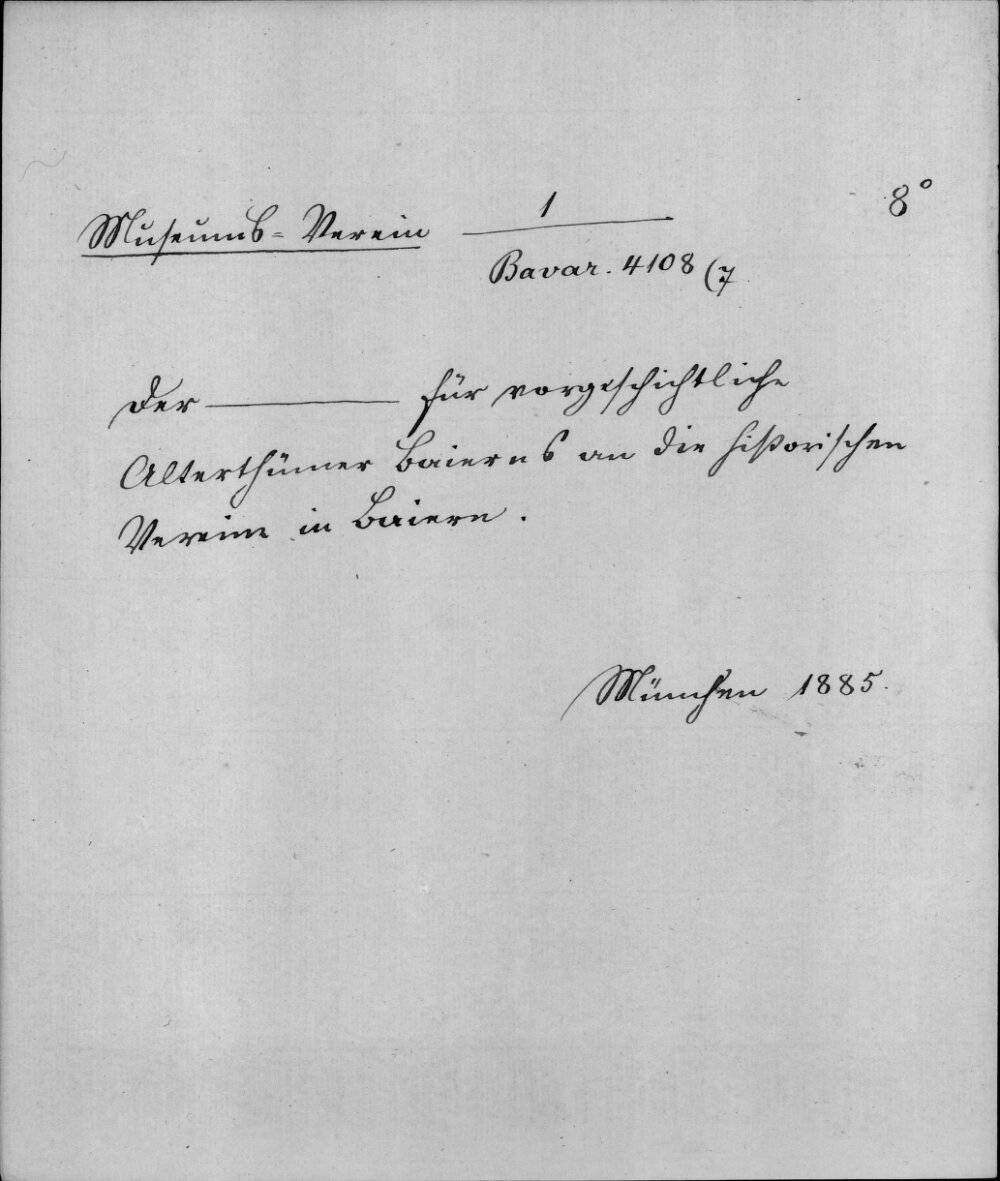 1
8°
Museums-Verein
Bavar. 4108 (7
Der ——— für vorgeschichtliche
Alterthümer Baierns an die historischen
Vereine in Baiern.
München 1885.